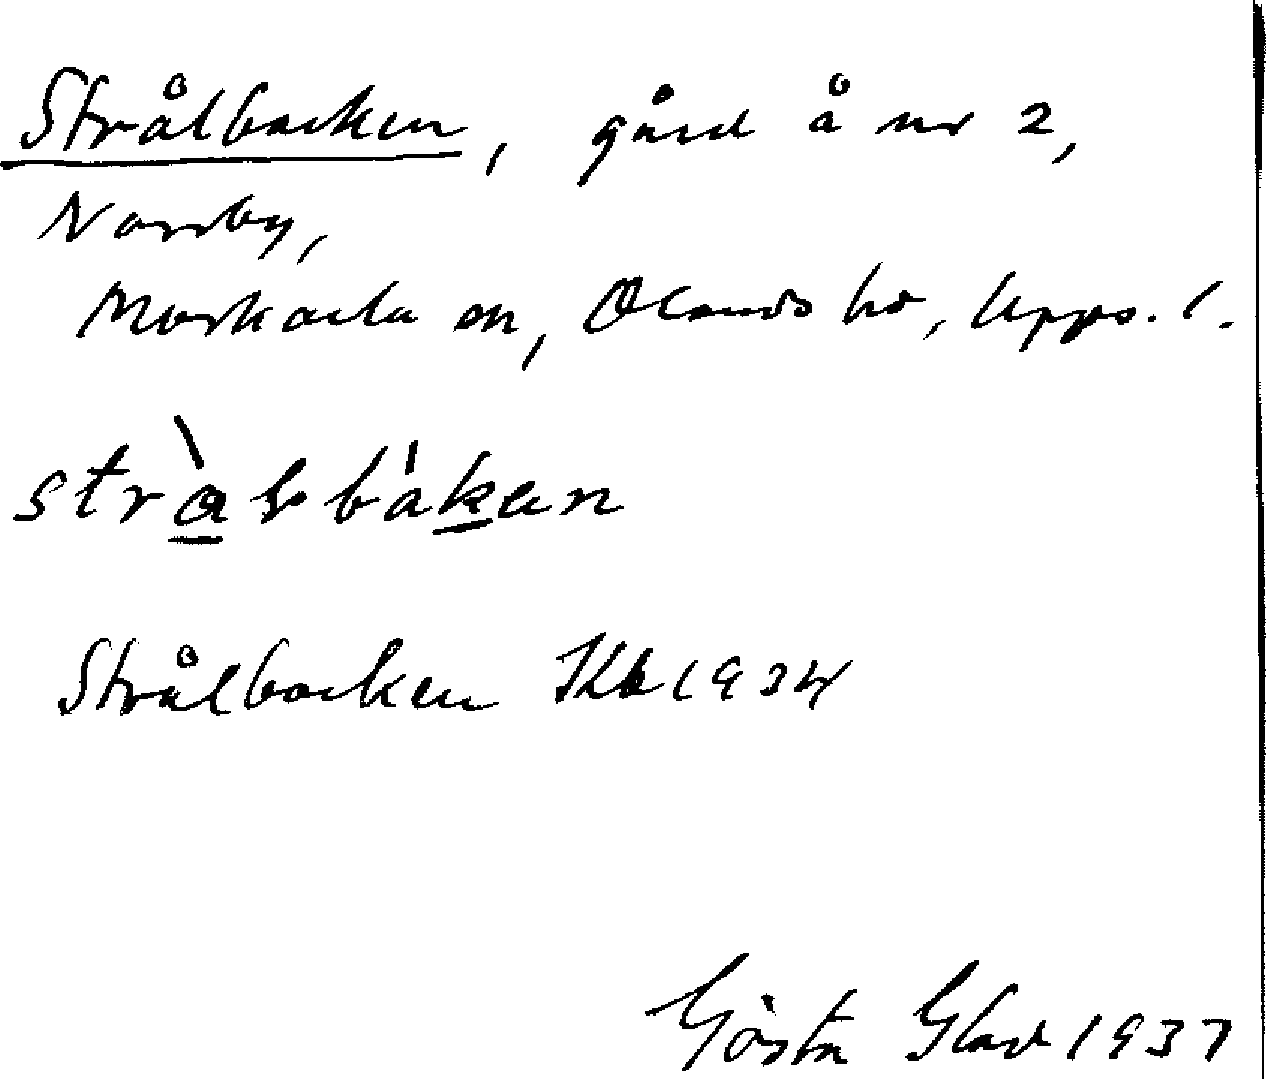 Strålbacken, gård å nr 2,
Norrby,
Morkarla sn, Olands hd, Upps. l.
stràlbákan
Strålbacken Kb 1934
Gösta Glad 1937